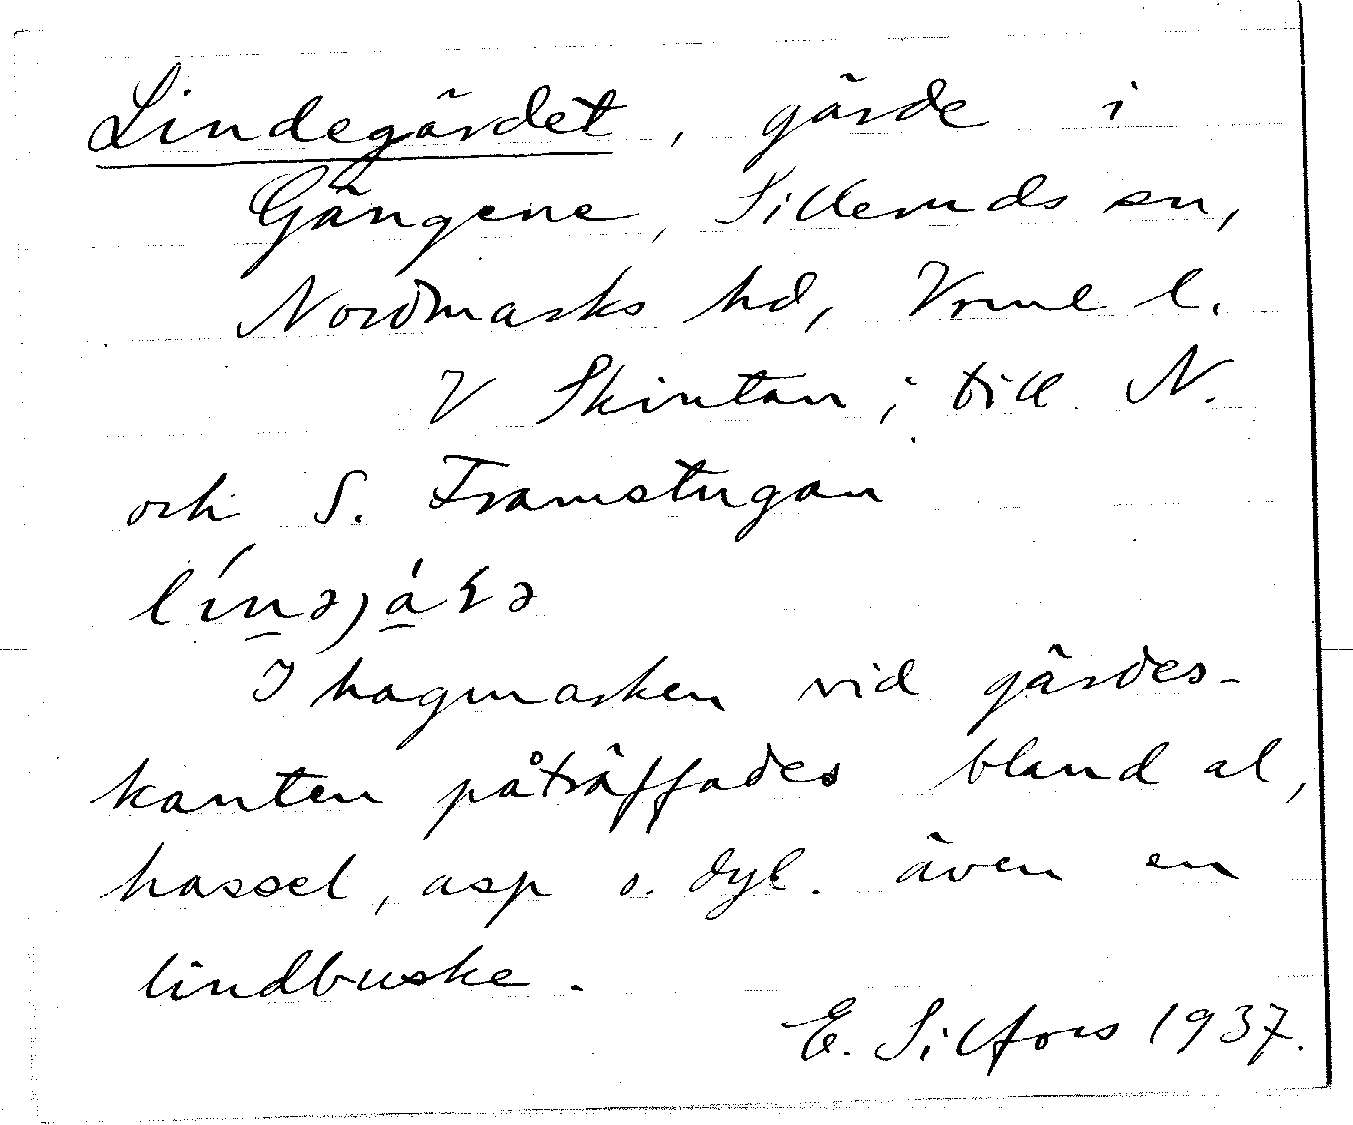 Lindegärdet, gärde i
Gängene, Silleruds sn,
Nordmarks hd, Vrml l.
V Skintan; till N.
och S. Framstugan
I hagmarken vid gärdes-
kanten påträffades bland al,
hassel, asp o. dyl. även en
lindbuske.
E. Silfors 1937.